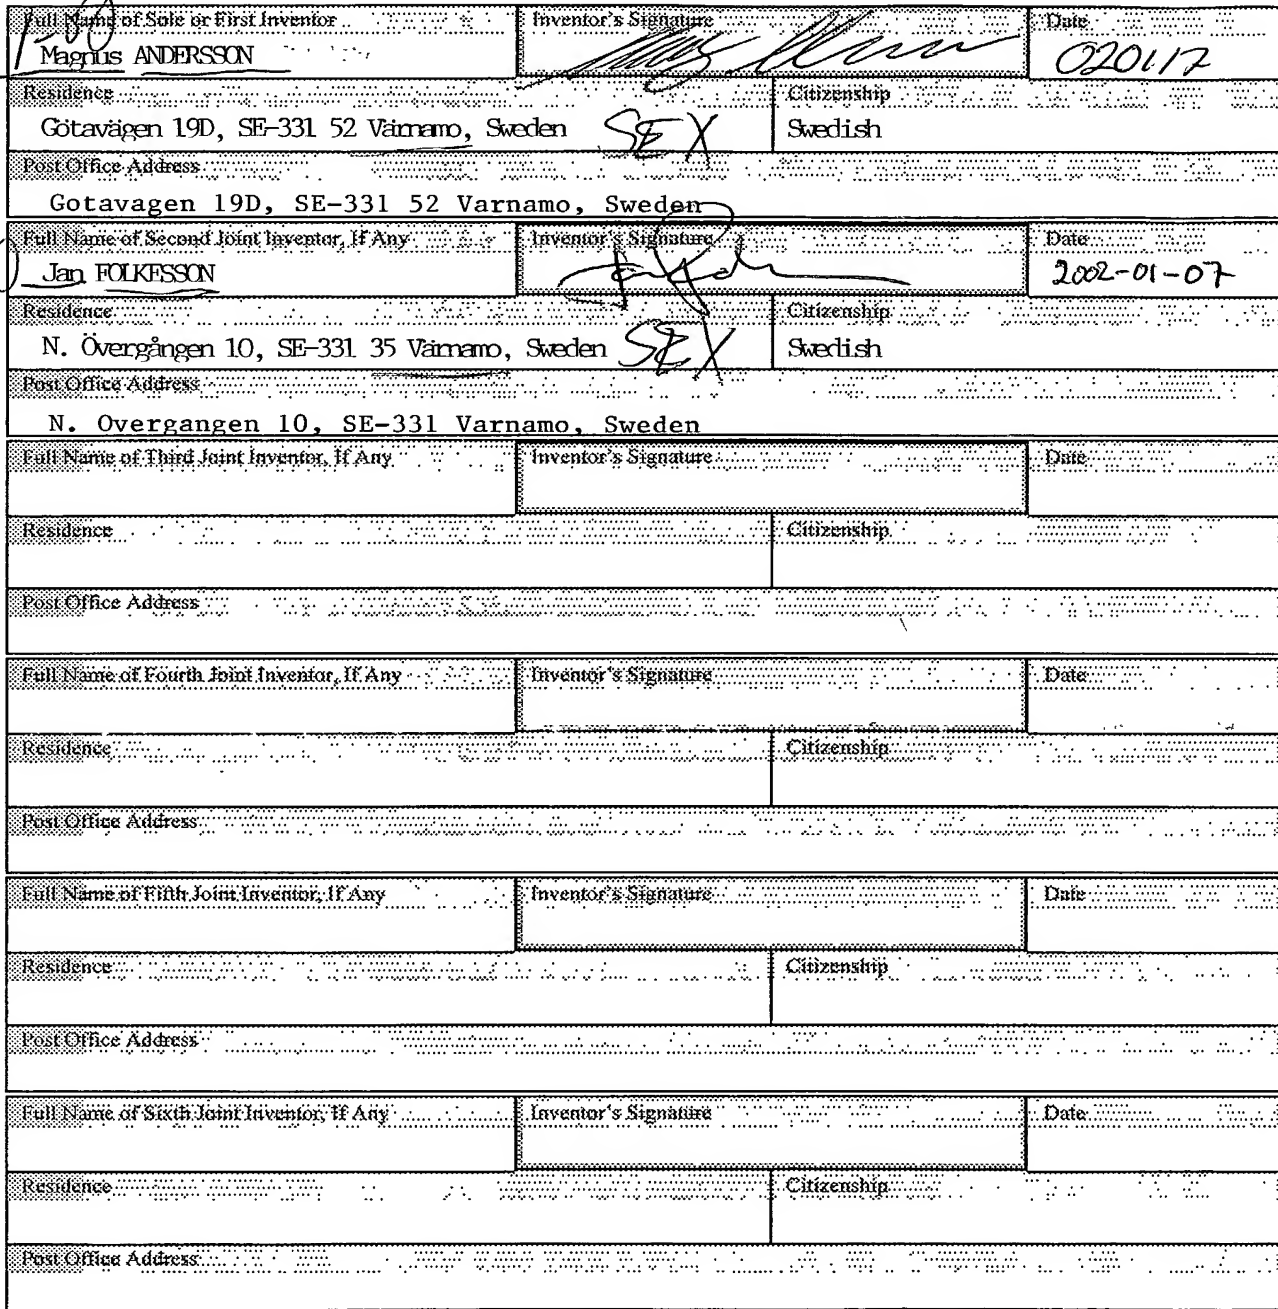 Full Name of Sole or First Inventor Inventor's Signature Date
Magnus ANDERSSON 020117
Residence Citizenship
Götavägen 19D, SE-331 52 Värnamo, Sweden SEX Swedish
Post Office Address
Gotavagen 19D, SE-331 52 Varnamo, Sweden
Full Name of Second Joint Inventor, If Any Inventor's Signature Date
Jan FOLKESSON 2002-01-07
Residence Citizenship
N. Övergången 10, SE-331 35 Värnamo, Sweden SEX Swedish
Post Office Address
N. Overgangen 10, SE-331 Varnamo, Sweden
Full Name of Third Joint Inventor, If Any Inventor's Signature Date
Residence Citizenship
Post Office Address
Full Name of Fourth Joint Inventor, If Any Inventor's Signature Date
Residence Citizenship
Post Office Address
Full Name of Fifth Joint Inventor, If Any Inventor's Signature Date
Residence Citizenship
Post Office Address
Full Name of Sixth Joint Inventor, If Any Inventor's Signature Date
Residence Citizenship
Post Office Address